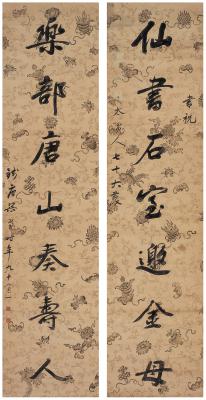 仙書石室邀金母
樂部唐山奏壽人
書祝
太夫人七十六慶
時年九十一